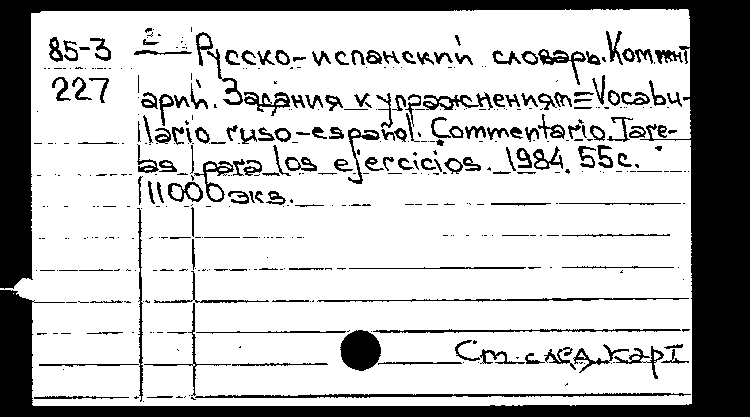 85-3 2 Русско-испанский словарь. Коммент
227 арий. Задания к упражнениям=Vocabu-
lario ruso-español. Commentario. Tare-
as para los ejercicios. 1984. 55с.
11000экз.
См. след. карт